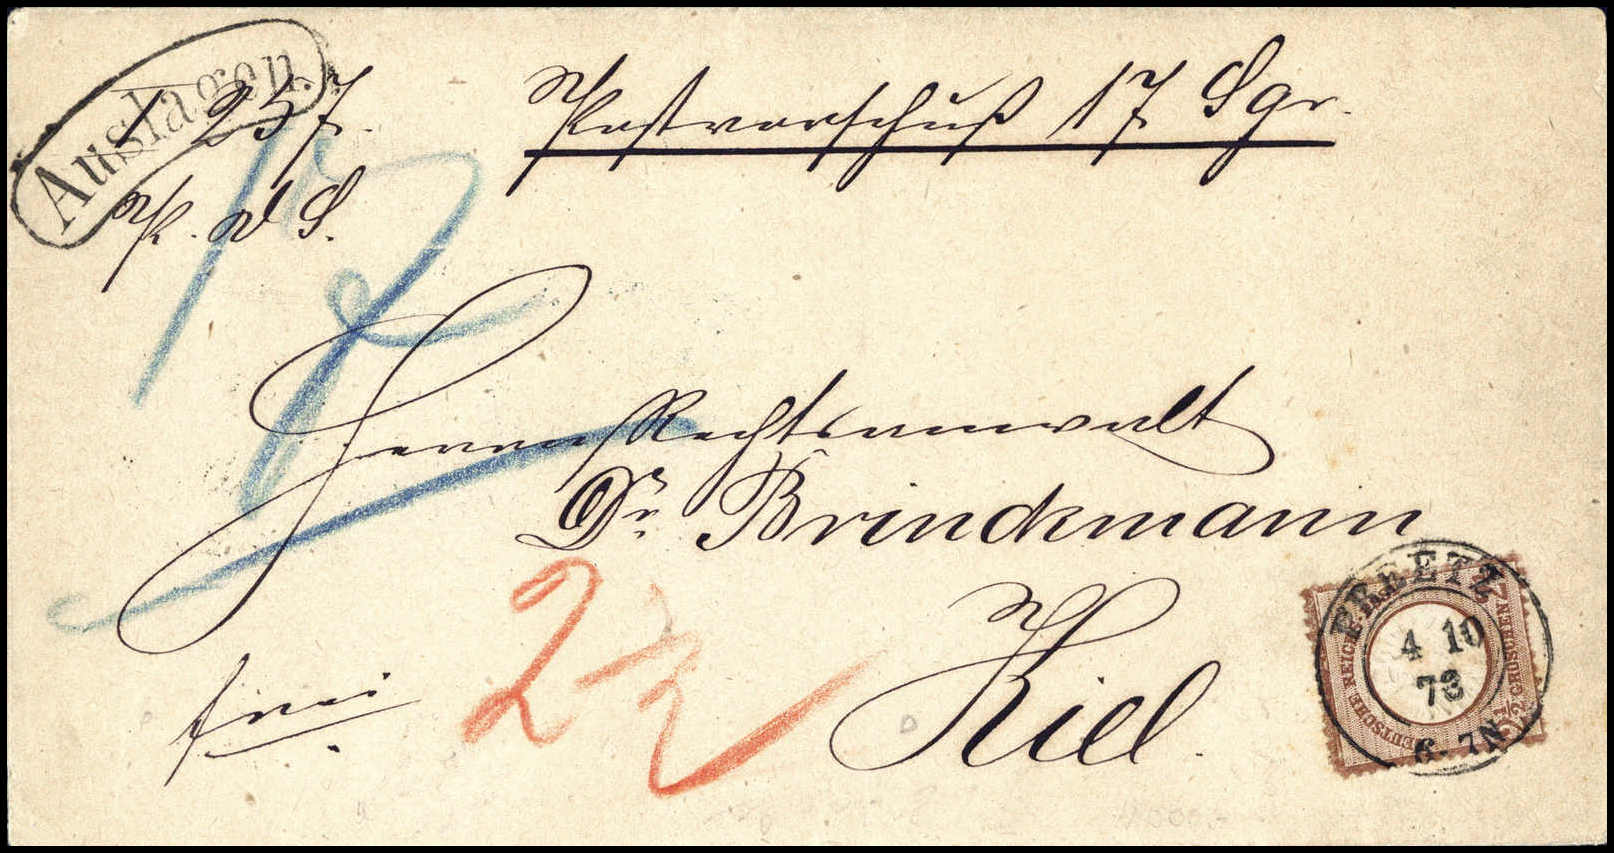 Auslagen.
№ 257. Postvorschuß 17 Sgr.
P. V S.
17
Herrn Rechtsanwalt
Dr. Brinckmann
Kiel.
frei
2½
PREETZ
4 10
73
6-7N
DEUTSCHE REICHS-POST
2½ GROSCHEN